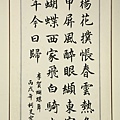 楊花撲帳春雲熱
甲屏風醉眼纈東
蝴蝶西家飛白騎
年今日歸
李賀蝴蝶
丙戌年